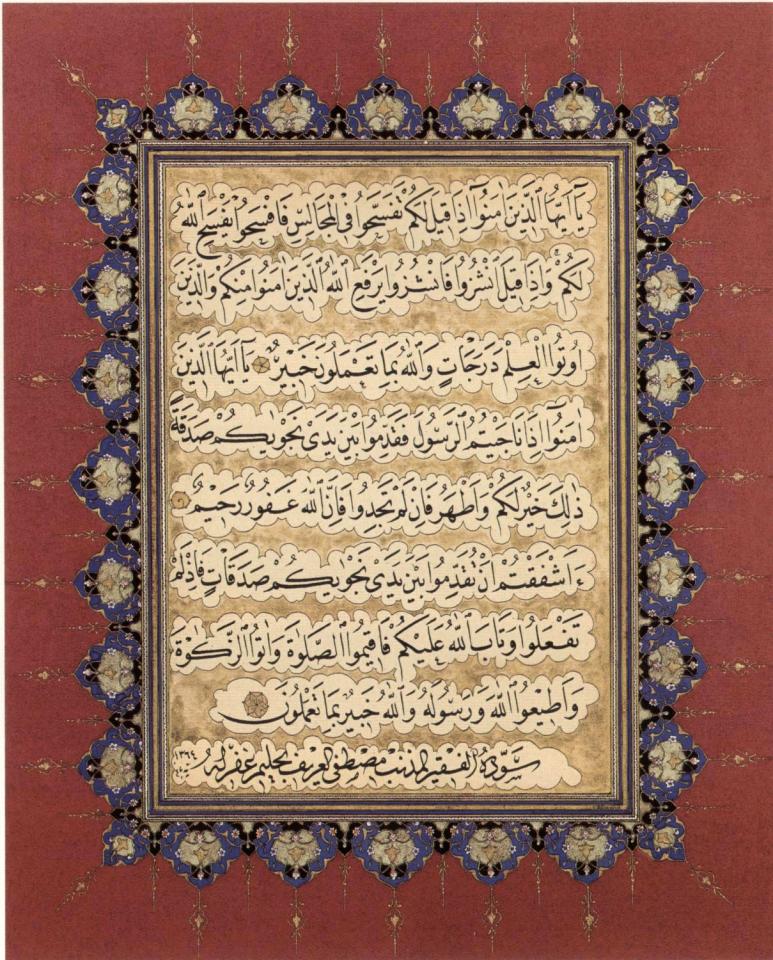 يَٓا اَيُّهَا الَّذينَ اٰمَنُٓوا اِذَا قيلَ لَكُمْ تَفَسَّحُوا فِي الْمَجَالِسِ فَافْسَحُوا يَفْسَحِ اللّٰهُ
لَكُمْ وَاِذَا قيلَ انْشُزُوا فَانْشُزُوا يَرْفَعِ اللّٰهُ الَّذينَ اٰمَنُوا مِنْكُمْ وَالَّذينَ
اُوتُوا الْعِلْمَ دَرَجَاتٍ وَاللّٰهُ بِمَا تَعْمَلُونَ خَبيرٌ يَٓا اَيُّهَا الَّذينَ
اٰمَنُٓوا اِذَا نَاجَيْتُمُ الرَّسُولَ فَقَدِّمُوا بَيْنَ يَدَيْ نَجْوٰيكُمْ صَدَقَةً
ذٰلِكَ خَيْرٌ لَكُمْ وَاَطْهَرُ فَاِنْ لَمْ تَجِدُوا فَاِنَّ اللّٰهَ غَفُورٌ رَحيمٌ
ءَاَشْفَقْتُمْ اَنْ تُقَدِّمُوا بَيْنَ يَدَيْ نَجْوٰيكُمْ صَدَقَاتٍ فَاِذْ لَمْ
تَفْعَلُوا وَتَابَ اللّٰهُ عَلَيْكُمْ فَاَقيمُوا الصَّلٰوةَ وَاٰتُوا الزَّكٰوةَ
وَاَطيعُوا اللّٰهَ وَرَسُولَهُ وَاللّٰهُ خَبيرٌ بِمَا تَعْمَلُونَ
سَوَّدَهُ الفقير المذنب مصطفى العريف بحليم غفر له سنة ١٣٦٤